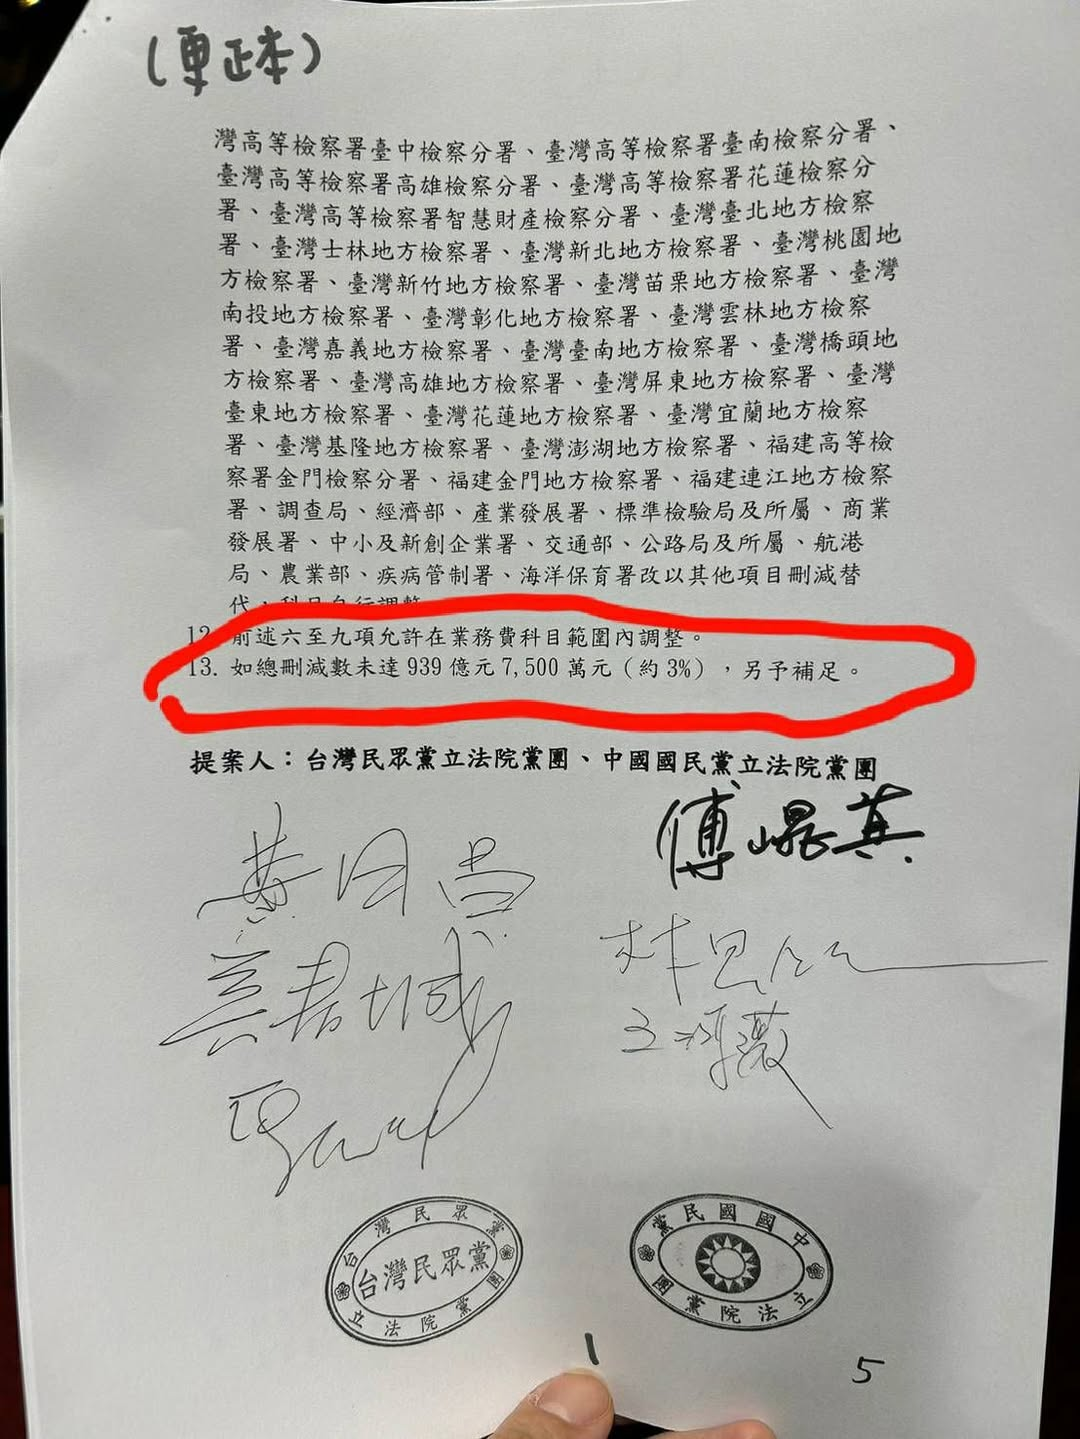 (更正本)
灣高等檢察署臺中檢察分署、臺灣高等檢察署臺南檢察分署、
臺灣高等檢察署高雄檢察分署、臺灣高等檢察署花蓮檢察分
署、臺灣高等檢察署智慧財產檢察分署、臺灣臺北地方檢察
署、臺灣士林地方檢察署、臺灣新北地方檢察署、臺灣桃園地
方檢察署、臺灣新竹地方檢察署、臺灣苗栗地方檢察署、臺灣
南投地方檢察署、臺灣彰化地方檢察署、臺灣雲林地方檢察
署、臺灣嘉義地方檢察署、臺灣臺南地方檢察署、臺灣橋頭地
方檢察署、臺灣高雄地方檢察署、臺灣屏東地方檢察署、臺灣
臺東地方檢察署、臺灣花蓮地方檢察署、臺灣宜蘭地方檢察
署、臺灣基隆地方檢察署、臺灣澎湖地方檢察署、福建高等檢
察署金門檢察分署、福建金門地方檢察署、福建連江地方檢察
署、調查局、經濟部、產業發展署、標準檢驗局及所屬、商業
發展署、中小及新創企業署、交通部、公路局及所屬、航港
局、農業部、疾病管制署、海洋保育署改以其他項目刪減替
代，科目自行調整
12. 前述六至九項允許在業務費科目範圍內調整。
13. 如總刪減數未達 939 億元 7,500 萬元（約 3%），另予補足。
提案人：台灣民眾黨立法院黨團、中國國民黨立法院黨團
傅崐萁
黃國昌
林思銘
吳春城
王鴻薇
台灣民眾黨
台灣民眾黨
立法院黨團
中國國民黨
立法院黨團
1
5